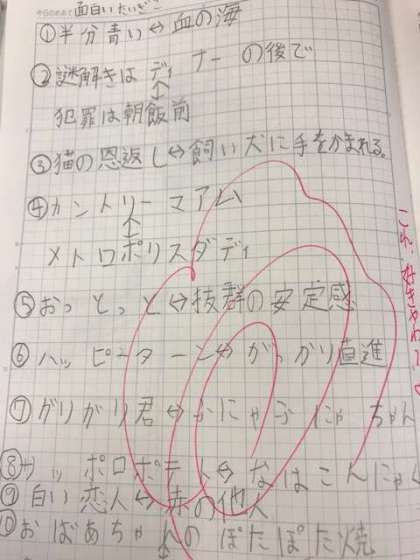 今日のめあて 面白いたいぎ
①半分青い⇔血の海
②謎解きはディナーの後で
↕
犯罪は朝飯前
③猫の恩返し⇔飼い犬に手をかまれる。
④カントリーマアム
↕
メトロポリスダディ
⑤おっとっと⇔抜群の安定感
⑥ハッピーターン⇔がっかり直進
⑦ガリガリ君⇔ふにゃふにゃちゃん
⑧サッポロポテト⇔なはこんにゃく
⑨白い恋人⇔赤の他人
⑩おばあちゃんのぽたぽた焼